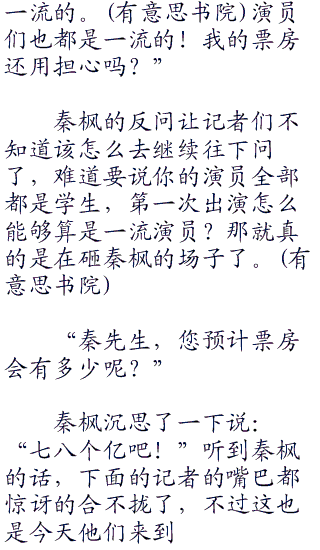 一流的。(有意思书院)演员
们也都是一流的！我的票房
还用担心吗？”
秦枫的反问让记者们不
知道该怎么去继续往下问
了，难道要说你的演员全部
都是学生，第一次出演怎么
能够算是一流演员？那就真
的是在砸秦枫的场子了。(有
意思书院)
“秦先生，您预计票房
会有多少呢？”
秦枫沉思了一下说：
“七八个亿吧！”听到秦枫
的话，下面的记者的嘴巴都
惊讶的合不拢了，不过这也
是今天他们来到